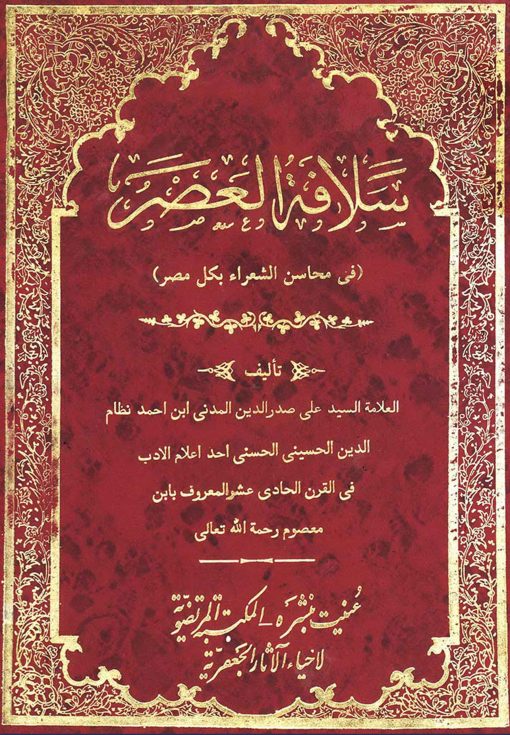 سَلافَةُ العَصْرِ
(فى محاسن الشعراء بكل مصر)
تأليف
العلامة السيد على صدرالدين المدنى ابن احمد نظام
الدين الحسينى الحسنى احد اعلام الادب
فى القرن الحادى عشر المعروف بابن
معصوم رحمة الله تعالى
عُنيت بنشره المكتبة المرتضويّة
لاحياء الآثار الجعفريّة